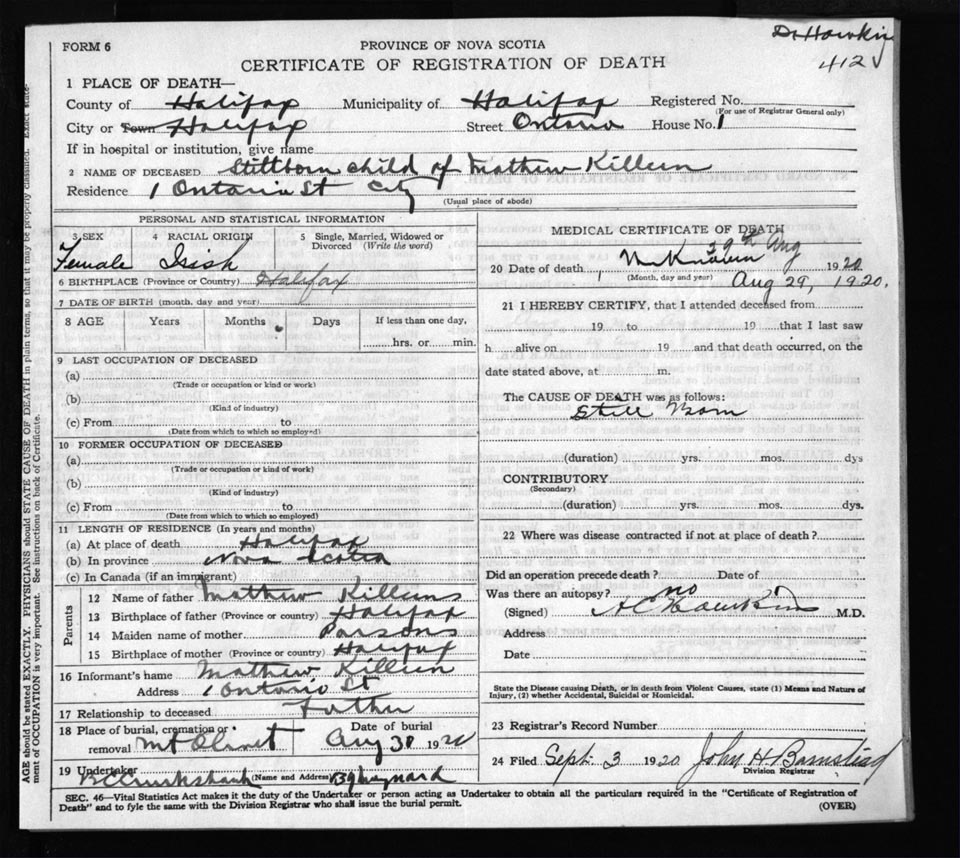 Dr Hawkin
412
FORM 6
PROVINCE OF NOVA SCOTIA
CERTIFICATE OF REGISTRATION OF DEATH
1 PLACE OF DEATH—
County of Halifax Municipality of Halifax Registered No.
(For use of Registrar General only)
City or Town Halifax Street Ontario House No. 1
If in hospital or institution, give name
2 NAME OF DECEASED Stillborn child of Mathew Killeen
Residence 1 Ontario St City
(Usual place of abode)
PERSONAL AND STATISTICAL INFORMATION
3 SEX 4 RACIAL ORIGIN 5 Single, Married, Widowed or Divorced (Write the word)
Female Irish
6 BIRTHPLACE (Province or Country) Halifax
7 DATE OF BIRTH (month, day and year)
8 AGE Years Months Days If less than one day,
hrs. or min.
9 LAST OCCUPATION OF DECEASED
(a)
(Trade or occupation or kind or work)
(b)
(Kind of industry)
(c) From to
(Date from which to which so employed)
10 FORMER OCCUPATION OF DECEASED
(a)
(Trade or occupation or kind of work)
(b)
(Kind of industry)
(c) From to
(Date from which to which so employed)
11 LENGTH OF RESIDENCE (In years and months)
(a) At place of death Halifax
(b) In province Nova Scotia
(c) In Canada (if an immigrant)
Parents
12 Name of father Mathew Killeens
13 Birthplace of father (Province or country) Halifax
14 Maiden name of mother Parsons
15 Birthplace of mother (Province or country) Halifax
16 Informant's name Mathew Killeen
Address 1 Ontario St
17 Relationship to deceased Father
18 Place of burial, cremation or removal Mt Olivet Date of burial Aug 30 1920
19 Undertaker (Name and Address)
MEDICAL CERTIFICATE OF DEATH
29th Aug
20 Date of death Unknown 1920
(Month, day and year) Aug 29, 1920.
21 I HEREBY CERTIFY, that I attended deceased from
19 to 19 that I last saw
h alive on 19 and that death occurred, on the
date stated above, at m.
The CAUSE OF DEATH was as follows:
Still Born
(duration) yrs. mos. dys
CONTRIBUTORY
(Secondary)
(duration) yrs. mos. dys.
22 Where was disease contracted if not at place of death?
Did an operation precede death? Date of
Was there an autopsy? no
(Signed) A C Hawkins M.D.
Address
Date
State the Disease causing Death, or in death from Violent Causes, state (1) Means and Nature of
Injury, (2) whether Accidental, Suicidal or Homicidal.
23 Registrar's Record Number
24 Filed Sept. 3 1920 John H. Barnstead
Division Registrar
SEC. 46—Vital Statistics Act makes it the duty of the Undertaker or person acting as Undertaker to obtain all the particulars required in the "Certificate of Registration of
Death" and to fyle the same with the Division Registrar who shall issue the burial permit. (OVER)